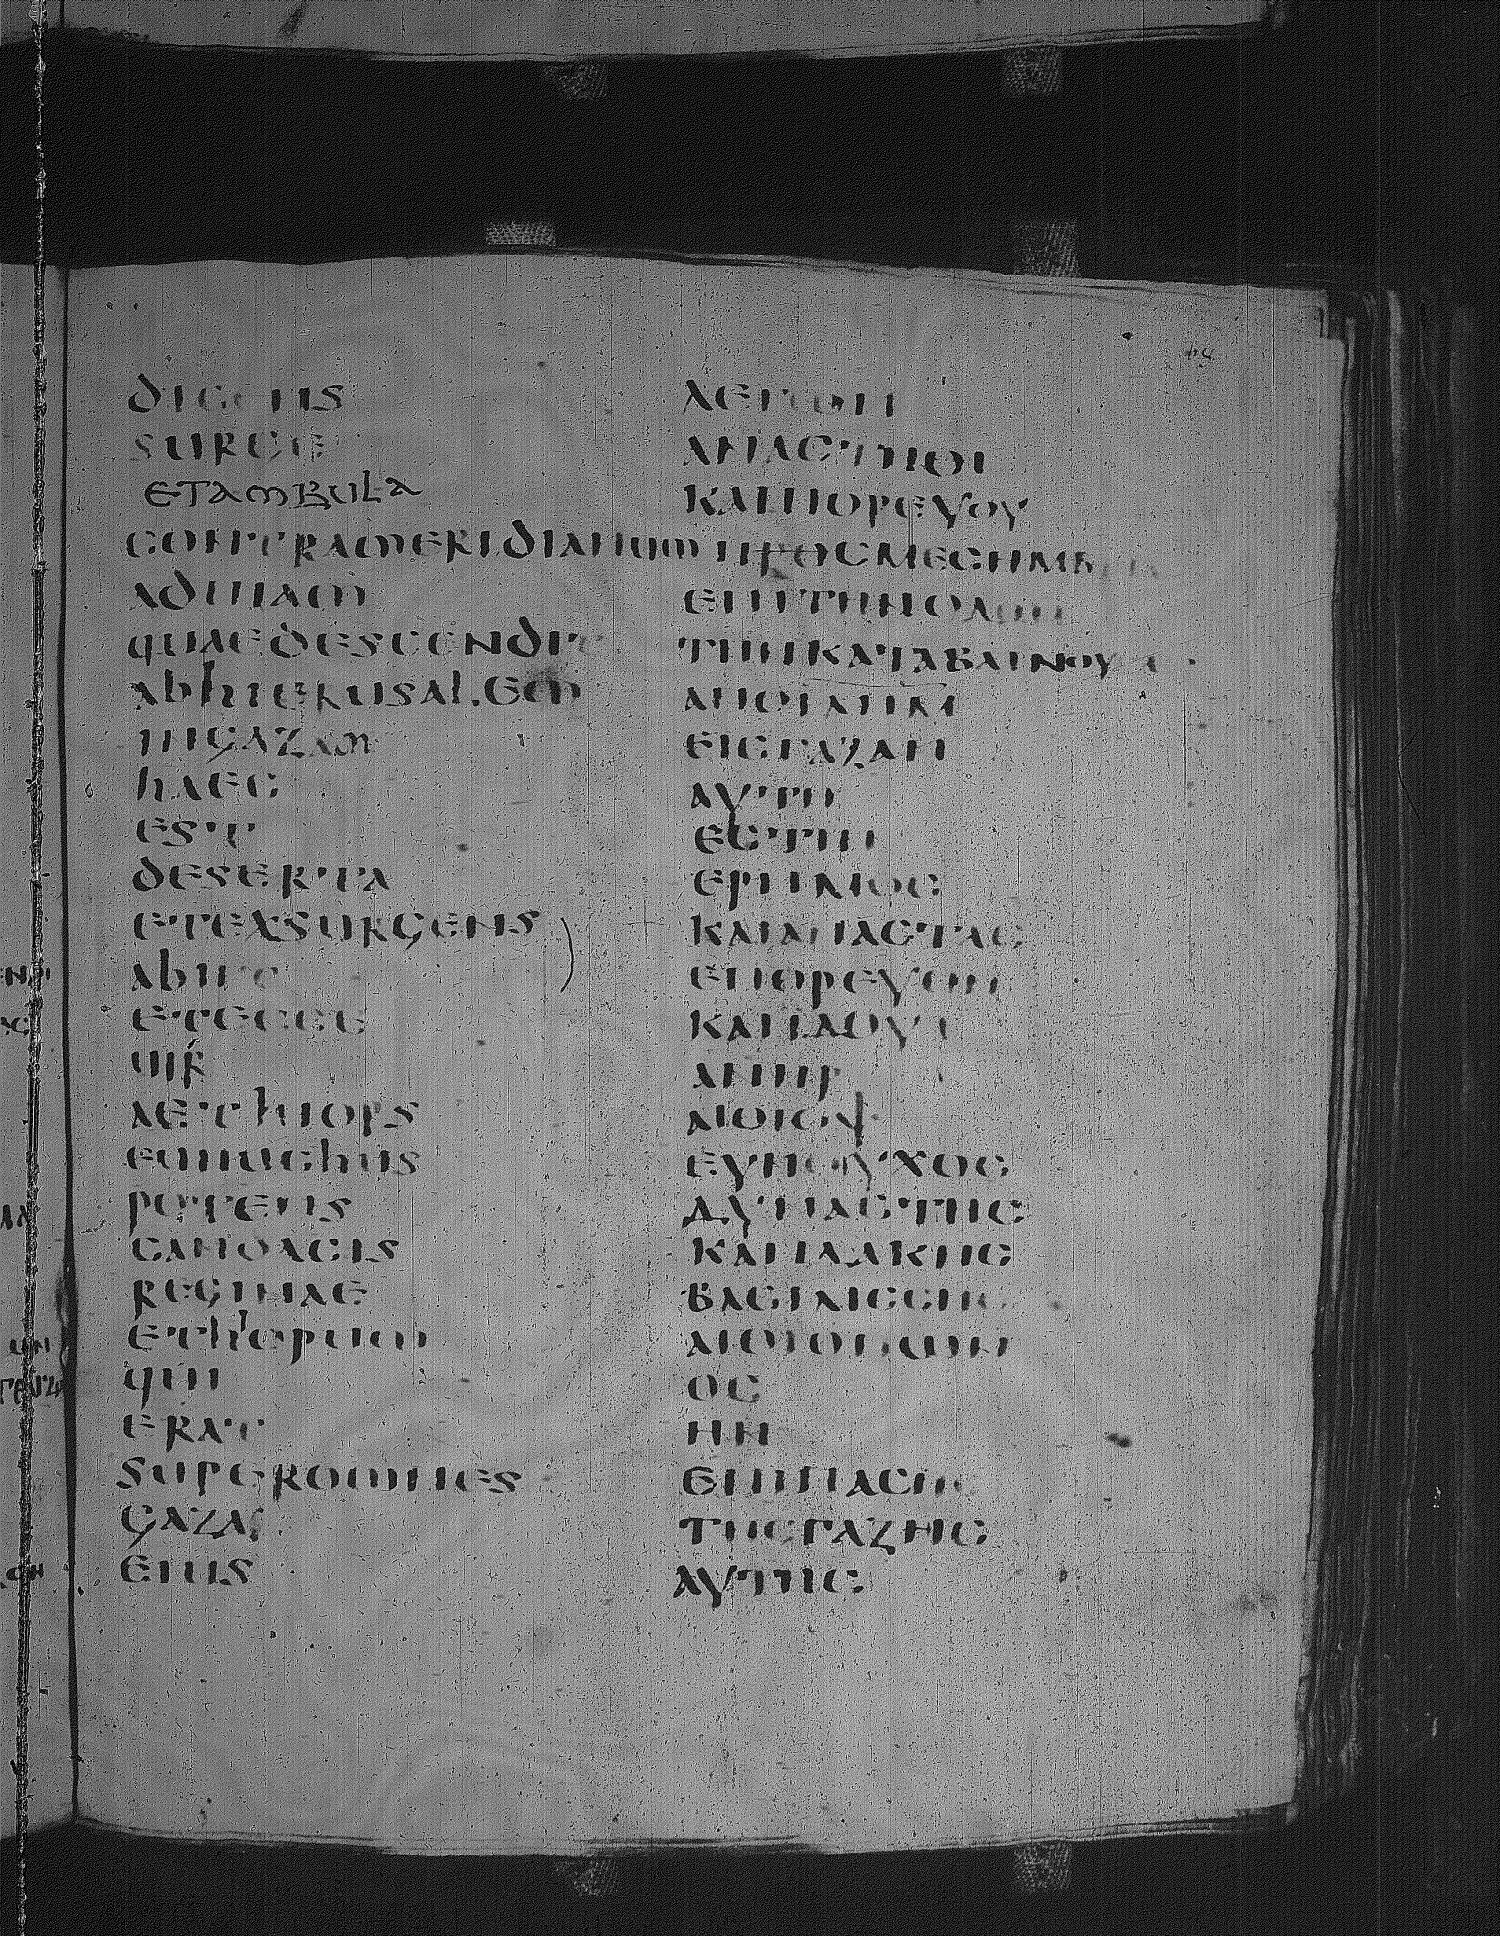 dicens
surge
et ambula
contra meridianum
ad uiam
quae descendit
ab hierusalem
in gazam
haec
est
deserta
et exsurgens
abiit
et ecce
uir
aethiops
eunuchus
potens
candacis
reginae
ethiopum
qui
erat
super omnes
gazas
eius
ΛΕΓΩΝ
ΑΝΑϹΤΗΘΙ
ΚΑΙ ΠΟΡΕΥΟΥ
ΠΡΟϹ ΜΕϹΗΜΒΡΙΑΝ
ΕΠΙ ΤΗΝ ΟΔΟΝ
ΤΗΝ ΚΑΤΑΒΑΙΝΟΥϹΑΝ
ΑΠΟ ΙΛΗΜ
ΕΙϹ ΓΑΖΑΝ
ΑΥΤΗ
ΕϹΤΙΝ
ΕΡΗΜΟϹ
ΚΑΙ ΑΝΑϹΤΑϹ
ΕΠΟΡΕΥΘΗ
ΚΑΙ ΙΔΟΥ
ΑΝΗΡ
ΑΙΘΙΟΨ
ΕΥΝΟΥΧΟϹ
ΔΥΝΑϹΤΗϹ
ΚΑΝΔΑΚΗϹ
ΒΑϹΙΛΙϹϹΗϹ
ΑΙΘΙΟΠΩΝ
ΟϹ
ΗΝ
ΕΠΙ ΠΑϹΗϹ
ΤΗϹ ΓΑΖΗϹ
ΑΥΤΗϹ